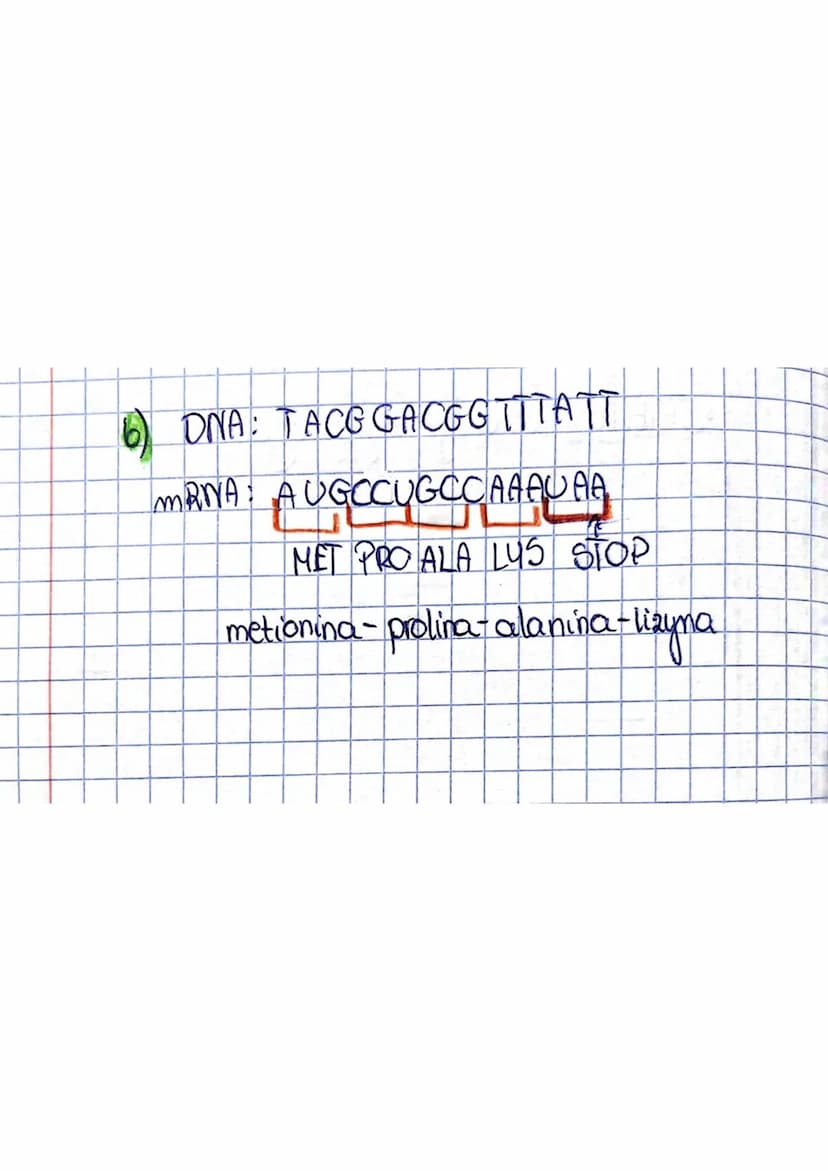 b) DNA: TACGGACGGTTTATT
mRNA: AUGCCUGCCAAAUAA
MET PRO ALA LYS STOP
metionina-prolina-alanina-lizyna